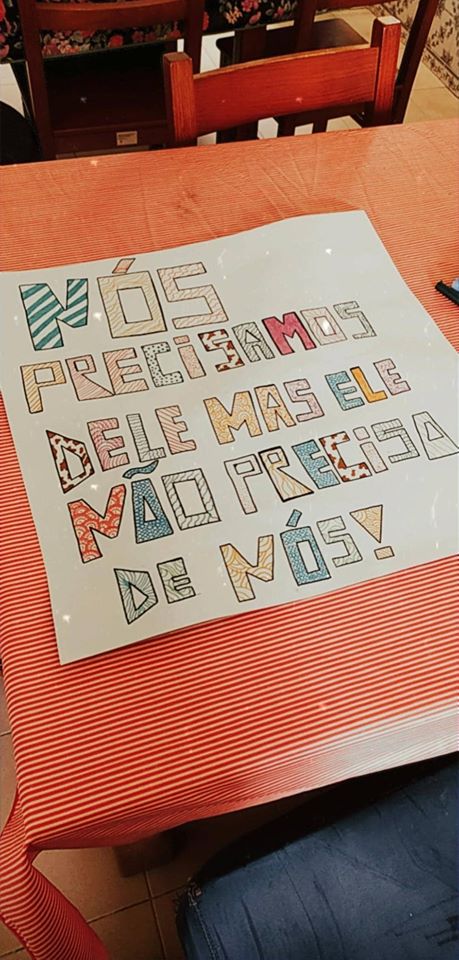 NÓS
PRECISAMOS
DELE MAS ELE
NÃO PRECISA
DE NÓS!